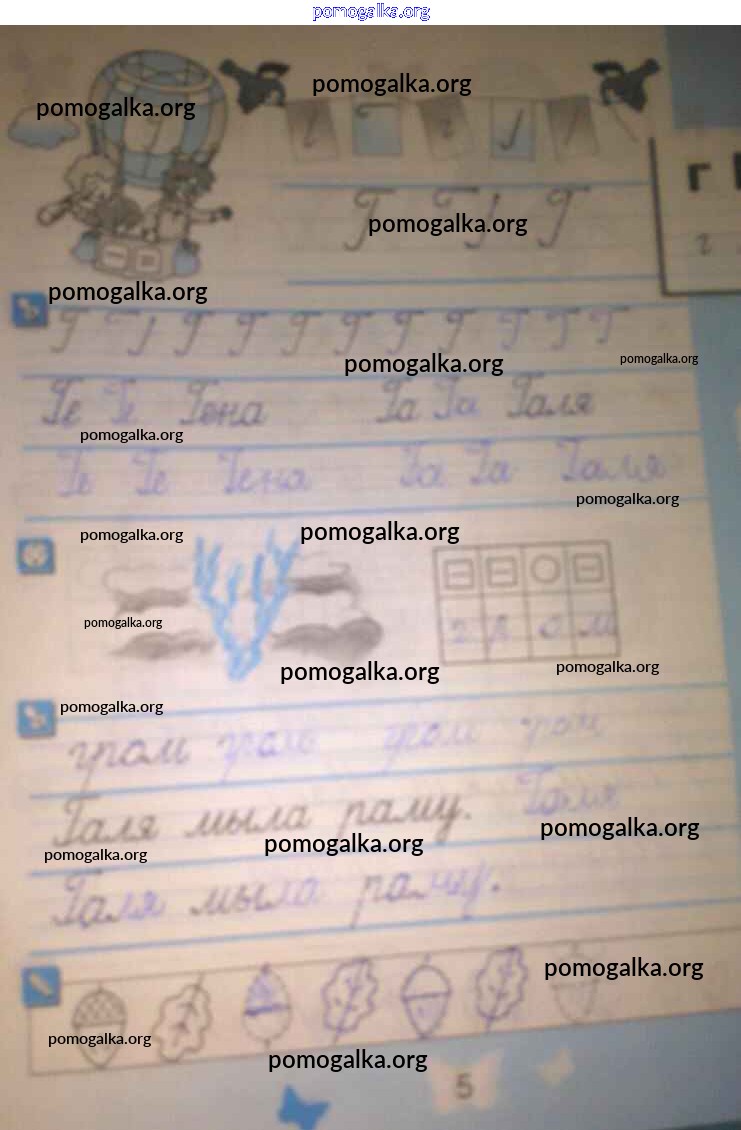 pomogalka.org
pomogalka.org
pomogalka.org
Г
г
Г Г Г
pomogalka.org
г
pomogalka.org
Г Г Г Г Г Г Г Г Г Г
pomogalka.org
pomogalka.org
Ге Ге Гена Га Га Галя
pomogalka.org
Ге Ге Гена Га Га Галя
pomogalka.org
pomogalka.org
pomogalka.org
pomogalka.org
г р о м
pomogalka.org
pomogalka.org
pomogalka.org
гром гром гром гром
Галя мыла раму. Галя
pomogalka.org
pomogalka.org
pomogalka.org
Галя мыла раму.
pomogalka.org
pomogalka.org
pomogalka.org
5